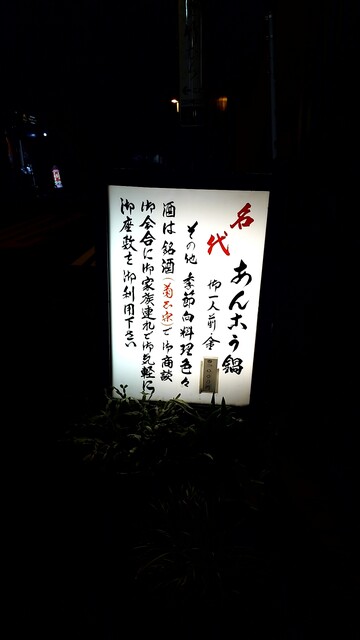 名代
あんこう鍋
御一人前・金
その他 季節向料理色々
酒は 銘酒(菊正宗)で 御商談
御会合に御家族連れで御気軽に
御座敷を 御利用下さい